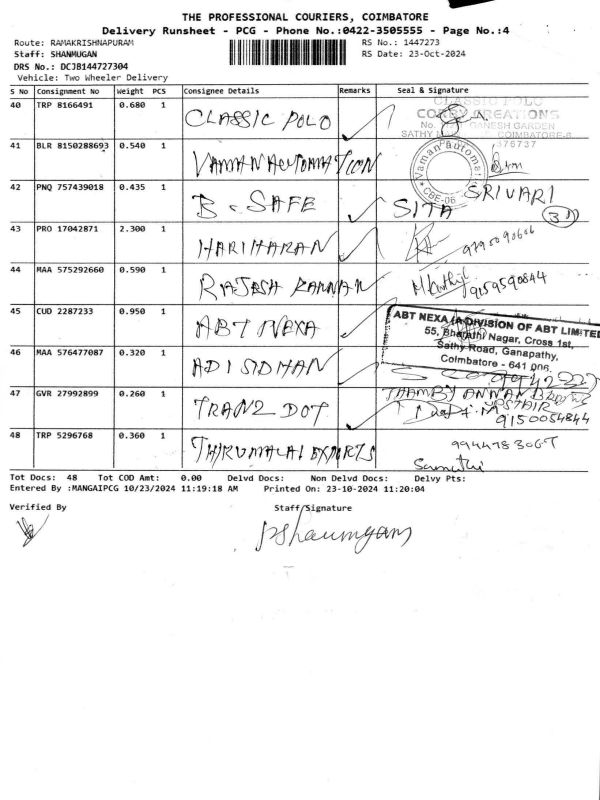 THE PROFESSIONAL COURIERS, COIMBATORE
Delivery Runsheet - PCG - Phone No.:0422-3505555 - Page No.:4
Route: RAMAKRISHNAPURAM RS No.: 1447273
Staff: SHANMUGAN RS Date: 23-Oct-2024
DRS No.: DCJB144727304
Vehicle: Two Wheeler Delivery
S No Consignment No Weight PCS Consignee Details Remarks Seal & Signature
40 TRP 8166491 0.680 1 CLASSIC POLO CLASSIC POLO
CREATIONS
No. GANESH GARDEN
SATHY COIMBATORE-6.
376737
41 BLR 8150288693 0.540 1 VAMAN AUTOMATION Vaman Automation CBE-06
42 PNQ 757439018 0.435 1 B. SAFE SITA SRIVARI
43 PRO 17042871 2.300 1 HARIHARAN 9790090606
44 MAA 575292660 0.590 1 RAJESH KANNAN 9159590844
45 CUD 2287233 0.950 1 ABT NEXA ABT NEXA (A DIVISION OF ABT LIMITED
55, Bharathi Nagar, Cross 1st,
Sathy Road, Ganapathy,
Coimbatore - 641 006.
46 MAA 576477087 0.320 1 ADISIDHAN
47 GVR 27992899 0.260 1 TRANZ DOT THAMBY ANNAN
UPSTAIR
9150054844
48 TRP 5296768 0.360 1 THIRUMALAI EXPORTS
Tot Docs: 48 Tot COD Amt: 0.00 Delvd Docs: Non Delvd Docs: Delvy Pts:
Entered By :MANGAIPCG 10/23/2024 11:19:18 AM Printed On: 23-10-2024 11:20:04
Verified By Staff/Signature